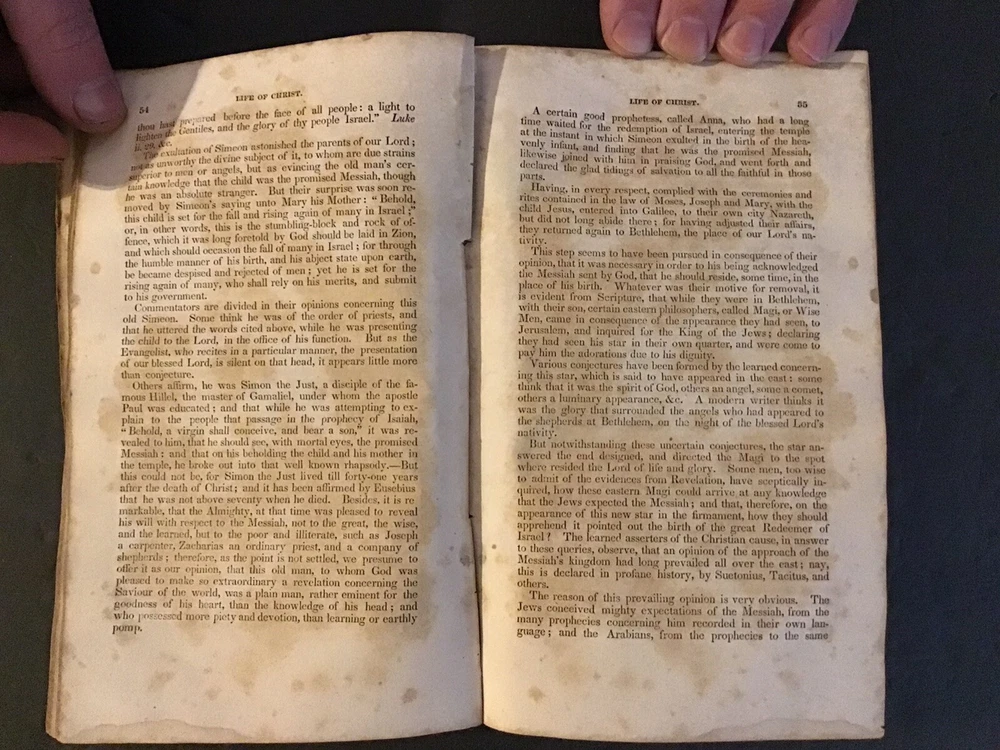 54
LIFE OF CHRIST.
thou hast prepared before the face of all people: a light to
lighten the Gentiles, and the glory of thy people Israel." Luke
ii. 29, &c.
The exultation of Simeon astonished the parents of our Lord;
not as unworthy the divine subject of it, to whom are due strains
superior to men or angels, but as evincing the old man's cer-
tain knowledge that the child was the promised Messiah, though
he was an absolute stranger. But their surprise was soon re-
moved by Simeon's saying unto Mary his Mother: "Behold,
this child is set for the fall and rising again of many in Israel;"
or, in other words, this is the stumbling-block and rock of of-
fence, which it was long foretold by God should be laid in Zion,
and which should occasion the fall of many in Israel; for through
the humble manner of his birth, and his abject state upon earth,
he became despised and rejected of men; yet he is set for the
rising again of many, who shall rely on his merits, and submit
to his government.
Commentators are divided in their opinions concerning this
old Simeon. Some think he was of the order of priests, and
that he uttered the words cited above, while he was presenting
the child to the Lord, in the office of his function. But as the
Evangelist, who recites in a particular manner, the presentation
of our blessed Lord, is silent on that head, it appears little more
than conjecture.
Others affirm, he was Simon the Just, a disciple of the fa-
mous Hillel, the master of Gamaliel, under whom the apostle
Paul was educated; and that while he was attempting to ex-
plain to the people that passage in the prophecy of Isaiah,
"Behold, a virgin shall conceive, and bear a son," it was re-
vealed to him, that he should see, with mortal eyes, the promised
Messiah: and that on his beholding the child and his mother in
the temple, he broke out into that well known rhapsody.—But
this could not be, for Simon the Just lived till forty-one years
after the death of Christ; and it has been affirmed by Eusebius
that he was not above seventy when he died. Besides, it is re
markable, that the Almighty, at that time was pleased to reveal
his will with respect to the Messiah, not to the great, the wise,
and the learned, but to the poor and illiterate, such as Joseph
a carpenter, Zacharias an ordinary priest, and a company of
shepherds; therefore, as the point is not settled, we presume to
offer it as our opinion, that this old man, to whom God was
pleased to make so extraordinary a revelation concerning the
Saviour of the world, was a plain man, rather eminent for the
goodness of his heart, than the knowledge of his head; and
who possessed more piety and devotion, than learning or earthly
pomp.
LIFE OF CHRIST.
55
A certain good prophetess, called Anna, who had a long
time waited for the redemption of Israel, entering the temple
at the instant in which Simeon exulted in the birth of the hea-
venly infant, and finding that he was the promised Messiah,
likewise joined with him in praising God, and went forth and
declared the glad tidings of salvation to all the faithful in those
parts.
Having, in every respect, complied with the ceremonies and
rites contained in the law of Moses, Joseph and Mary, with the
child Jesus, entered into Galilee, to their own city Nazareth,
but did not long abide there; for having adjusted their affairs,
they returned again to Bethlehem, the place of our Lord's na-
tivity.
This step seems to have been pursued in consequence of their
opinion, that it was necessary in order to his being acknowledged
the Messiah sent by God, that he should reside, some time, in the
place of his birth. Whatever was their motive for removal, it
is evident from Scripture, that while they were in Bethlehem,
with their son, certain eastern philosophers, called Magi, or Wise
Men, came in consequence of the appearance they had seen, to
Jerusalem, and inquired for the King of the Jews; declaring
they had seen his star in their own quarter, and were come to
pay him the adorations due to his dignity.
Various conjectures have been formed by the learned concern-
ing this star, which is said to have appeared in the east: some
think that it was the spirit of God, others an angel, some a comet,
others a luminary appearance, &c. A modern writer thinks it
was the glory that surrounded the angels who had appeared to
the shepherds at Bethlehem, on the night of the blessed Lord's
nativity.
But notwithstanding these uncertain conjectures, the star an-
swered the end designed, and directed the Magi to the spot
where resided the Lord of life and glory. Some men, too wise
to admit of the evidences from Revelation, have sceptically in-
quired, how these eastern Magi could arrive at any knowledge
that the Jews expected the Messiah; and that, therefore, on the
appearance of this new star in the firmament, how they should
apprehend it pointed out the birth of the great Redeemer of
Israel? The learned asserters of the Christian cause, in answer
to these queries, observe, that an opinion of the approach of the
Messiah's kingdom had long prevailed all over the east; nay,
this is declared in profane history, by Suetonius, Tacitus, and
others.
The reason of this prevailing opinion is very obvious. The
Jews conceived mighty expectations of the Messiah, from the
many prophecies concerning him recorded in their own lan-
guage; and the Arabians, from the prophecies to the same